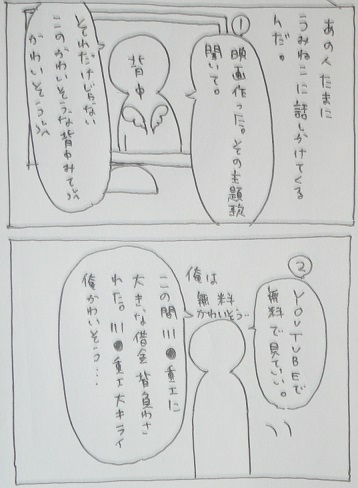 あの人たまに
うみねこに話しかけてくる
んだ。
①
映画作った。その主題歌
聞いて。
背中
それだけじゃない
このかわいそうな背中みてぃ
かわいそうぅ
②
YOUTUBEで
無料で見ていい。
俺は
無料
かわいそう…
この間川●重工に
大きな借金背負わさ
れた。川●重工大キライ
俺かわいそう…